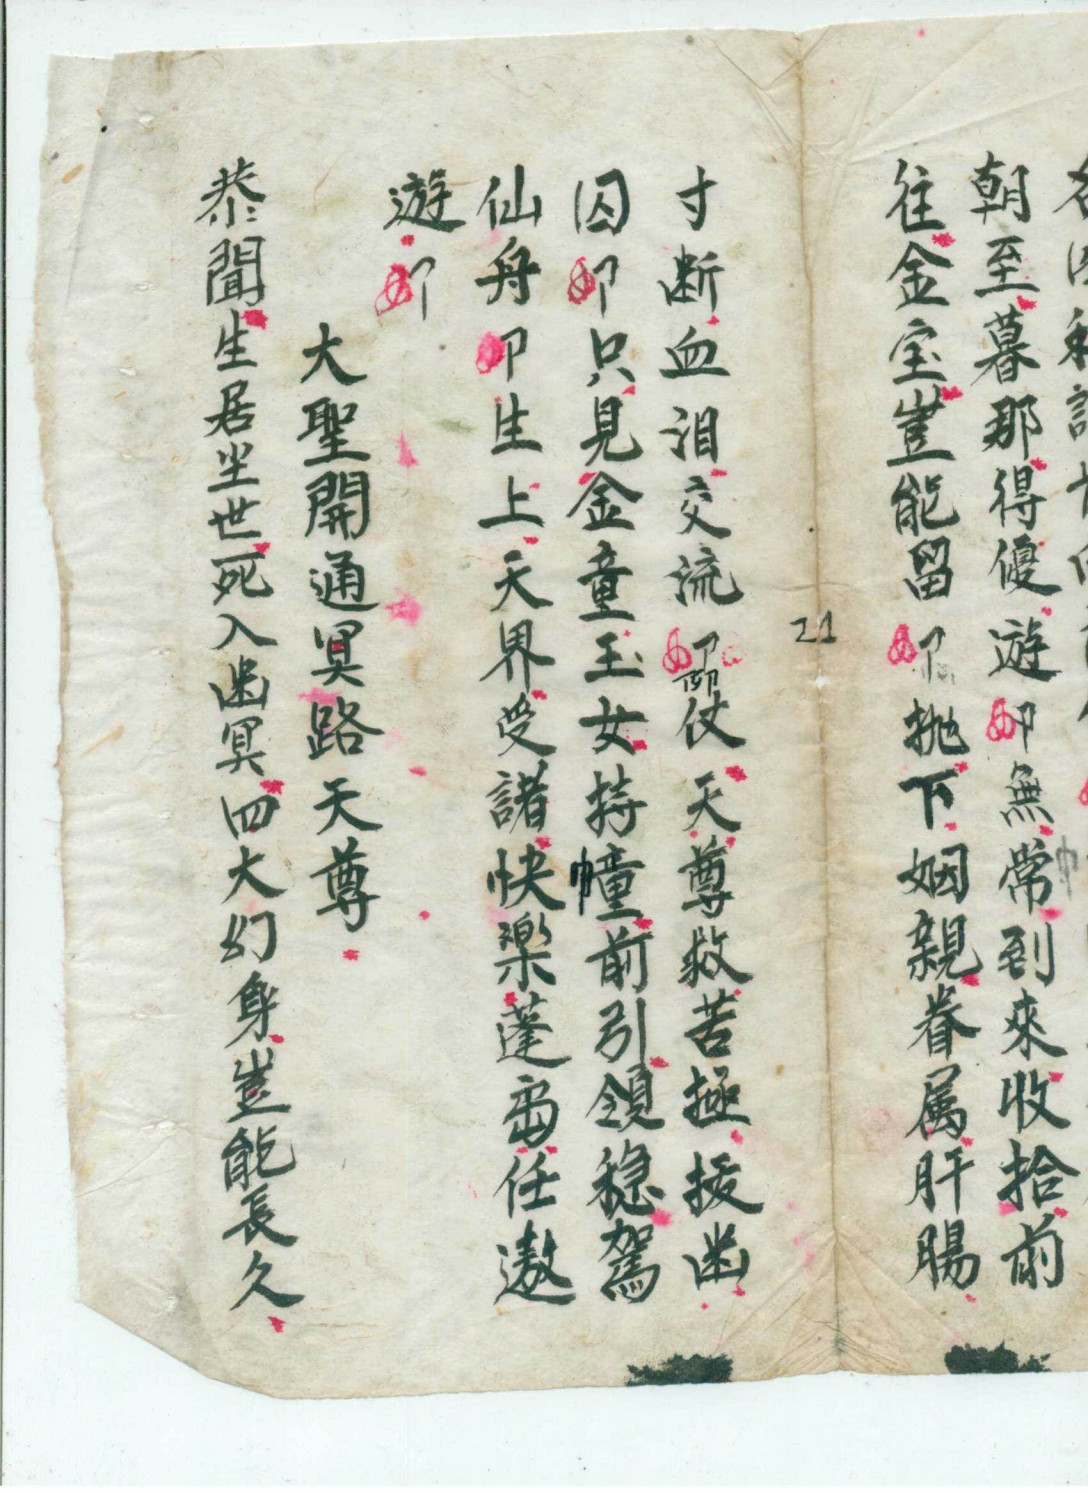 朝至暮那得優遊卬無常到來收拾前
往金宝豈能留卬抛下姻親眷属肝腸
21
寸断血泪交流卬仗天尊救苦極拔幽
囚卬只見金童玉女持幢前引領穏駕
仙舟卬生上天界受諸快樂蓬島任遨
遊卬
大聖開通冥路天尊
恭聞生居尘世死入幽冥四大幻身豈能長久